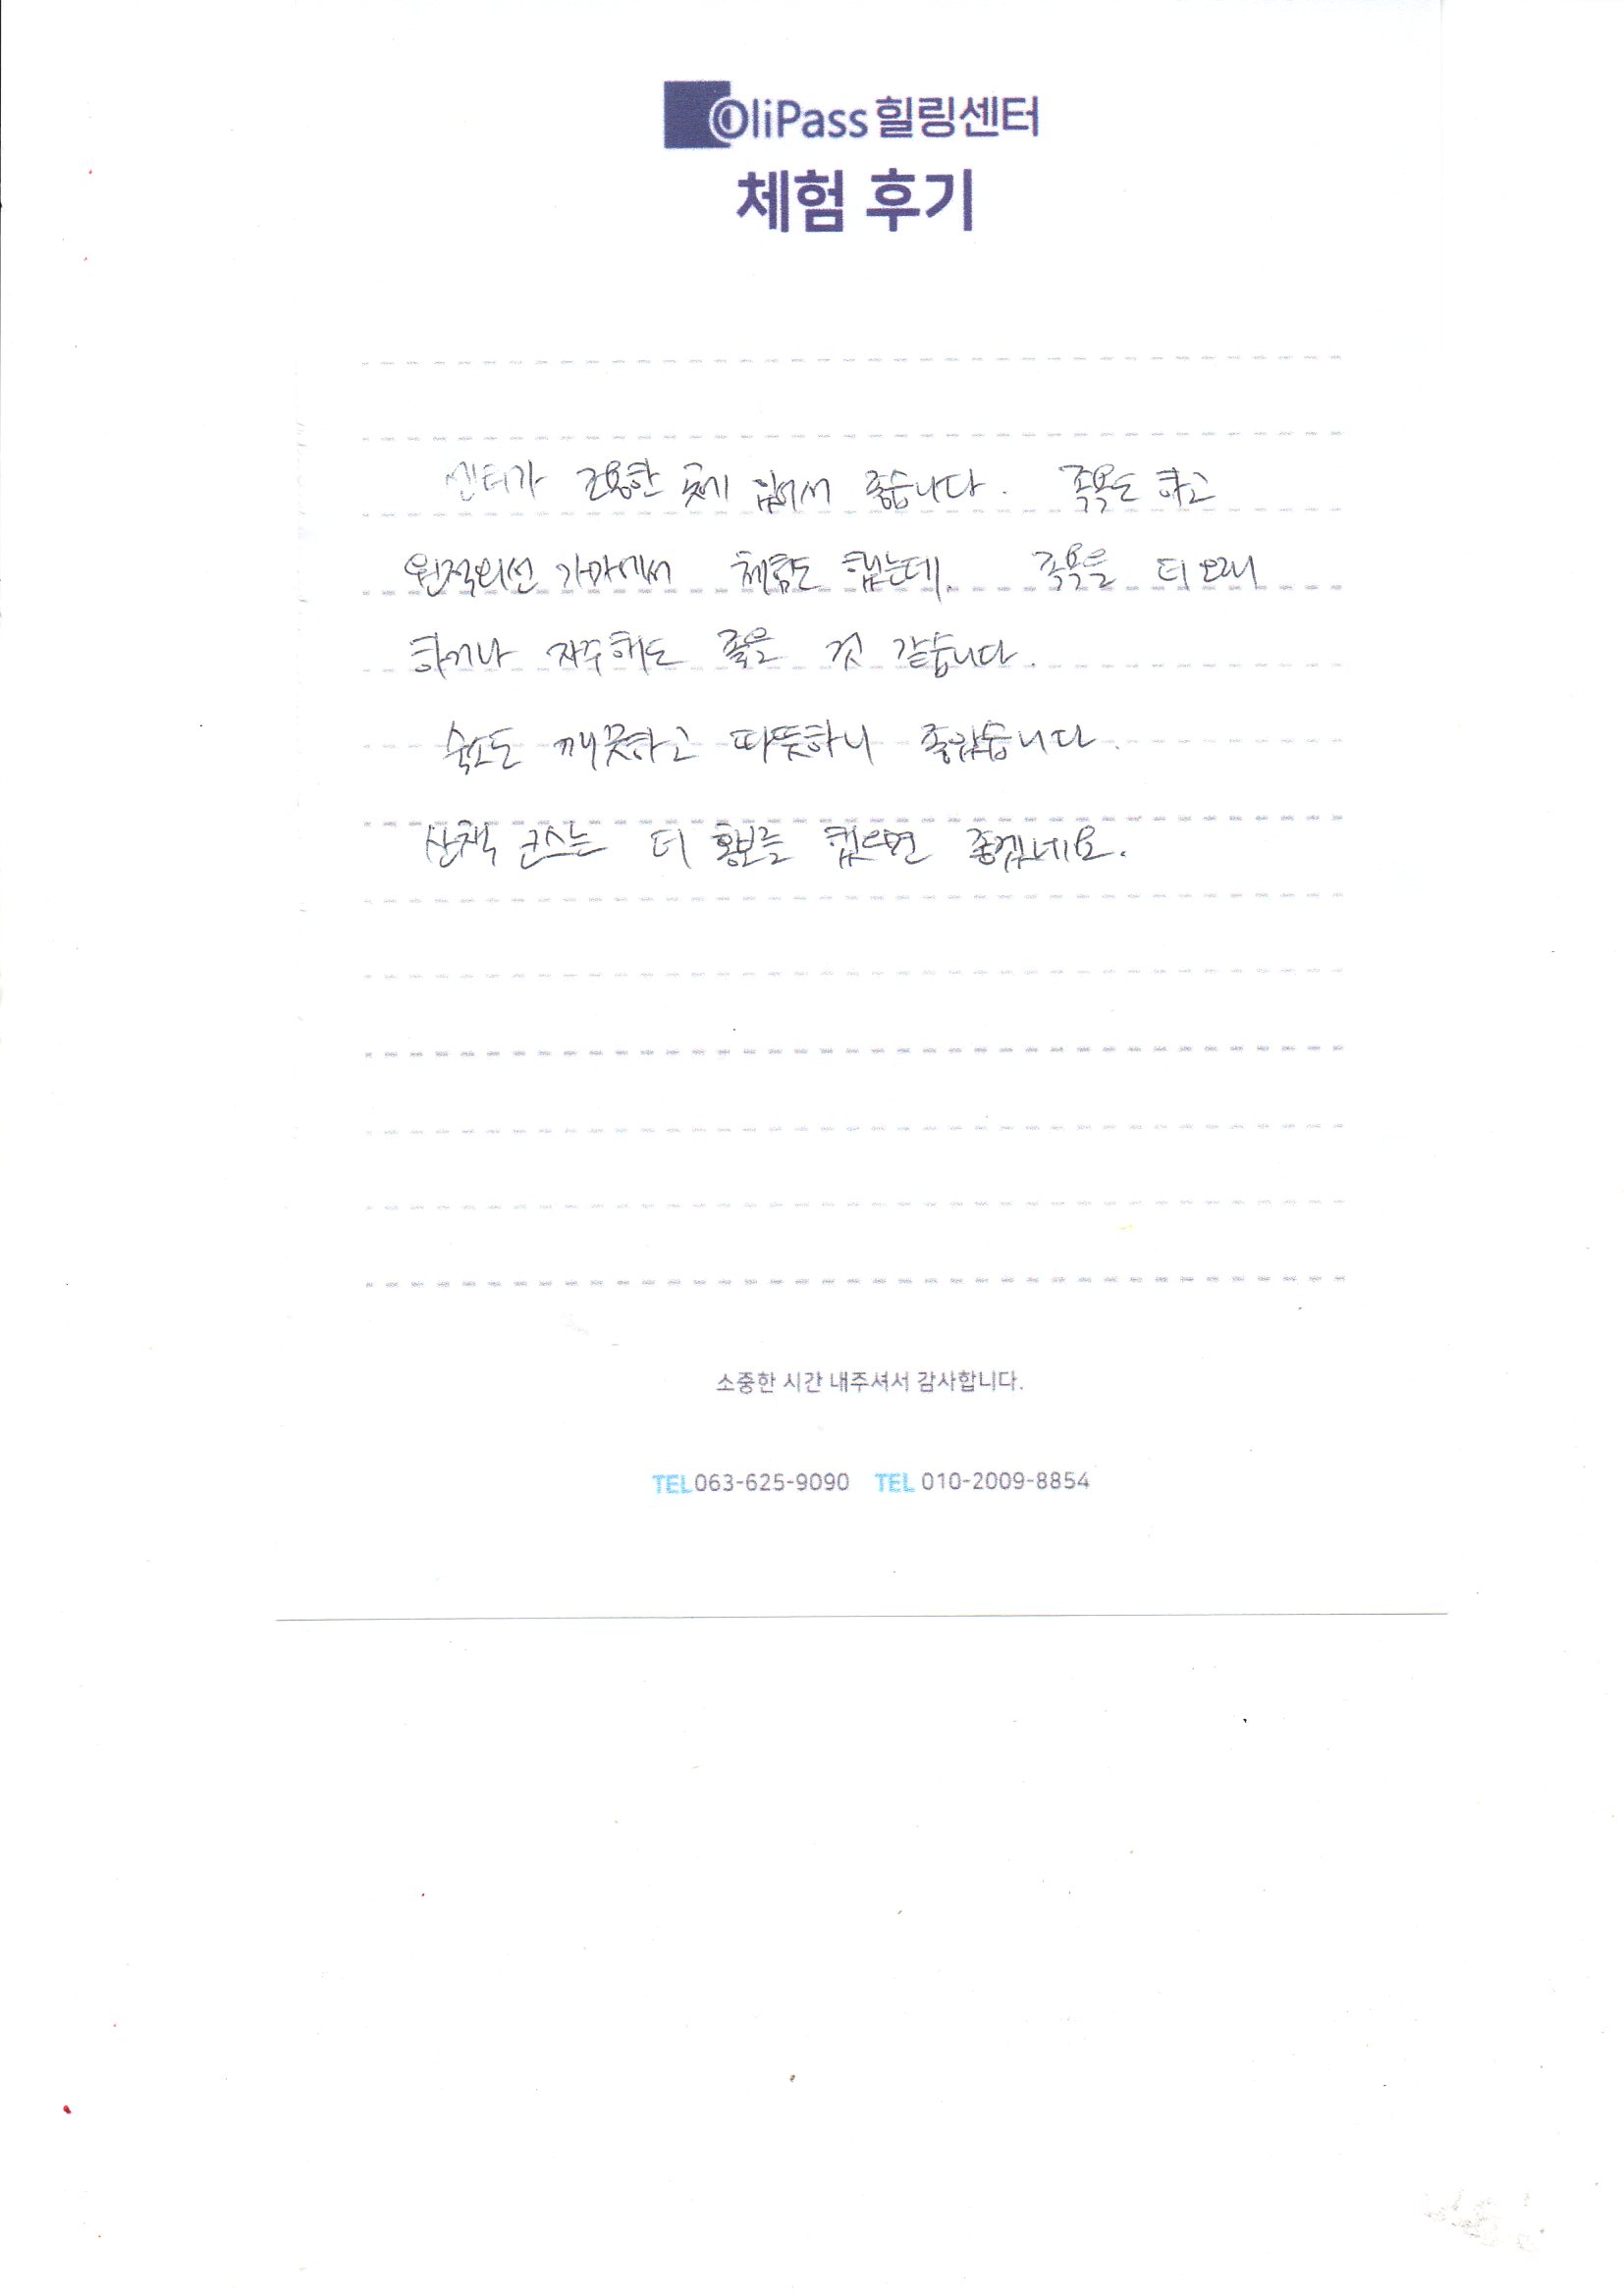 OliPass 힐링센터
체험 후기
센터가 조용한 곳에 있어서 좋습니다. 족욕도 하고
원적외선 가마에서 체험도 했는데. 족욕을 더 오래
하거나 자주해도 좋을 것 같습니다.
숙소도 깨끗하고 따뜻하니 좋았습니다.
산책 코스는 더 홍보를 했으면 좋겠네요.
소중한 시간 내주셔서 감사합니다.
TEL 063-625-9090 TEL 010-2009-8854